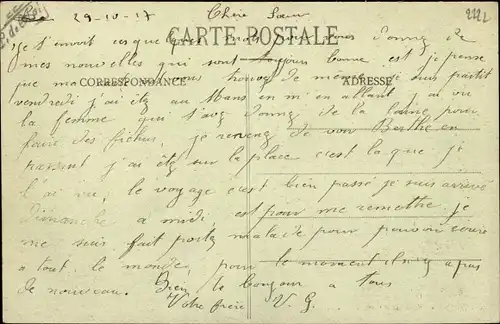 29-10-17 Chère Sœur 2122
CARTE POSTALE
je t'envoit ces quelques mots pour vous donnez de
mes nouvelles qui sont toujour bonne est je pense
que ma vous trouvez de même je suis partit
CORRESPONDANCE ADRESSE
vendredi j'ai étez au Mans en m'en allant j'ai vu
la femme qui t'avez donnez de la laine pour
faire des fichus, je revenez de voir Berthe en
passant j'ai étez sur la place c'est la que je
l'ai vu, le voyage c'est bien passé je suis arrivé
dimanche a midi, est pour me remettre je
me suis fait portez malade pour pouvoir écrire
a tout le monde, pour le moment il n'y a pas
de nouveau. Bien le bonjour a tous
Votre frère V. G.